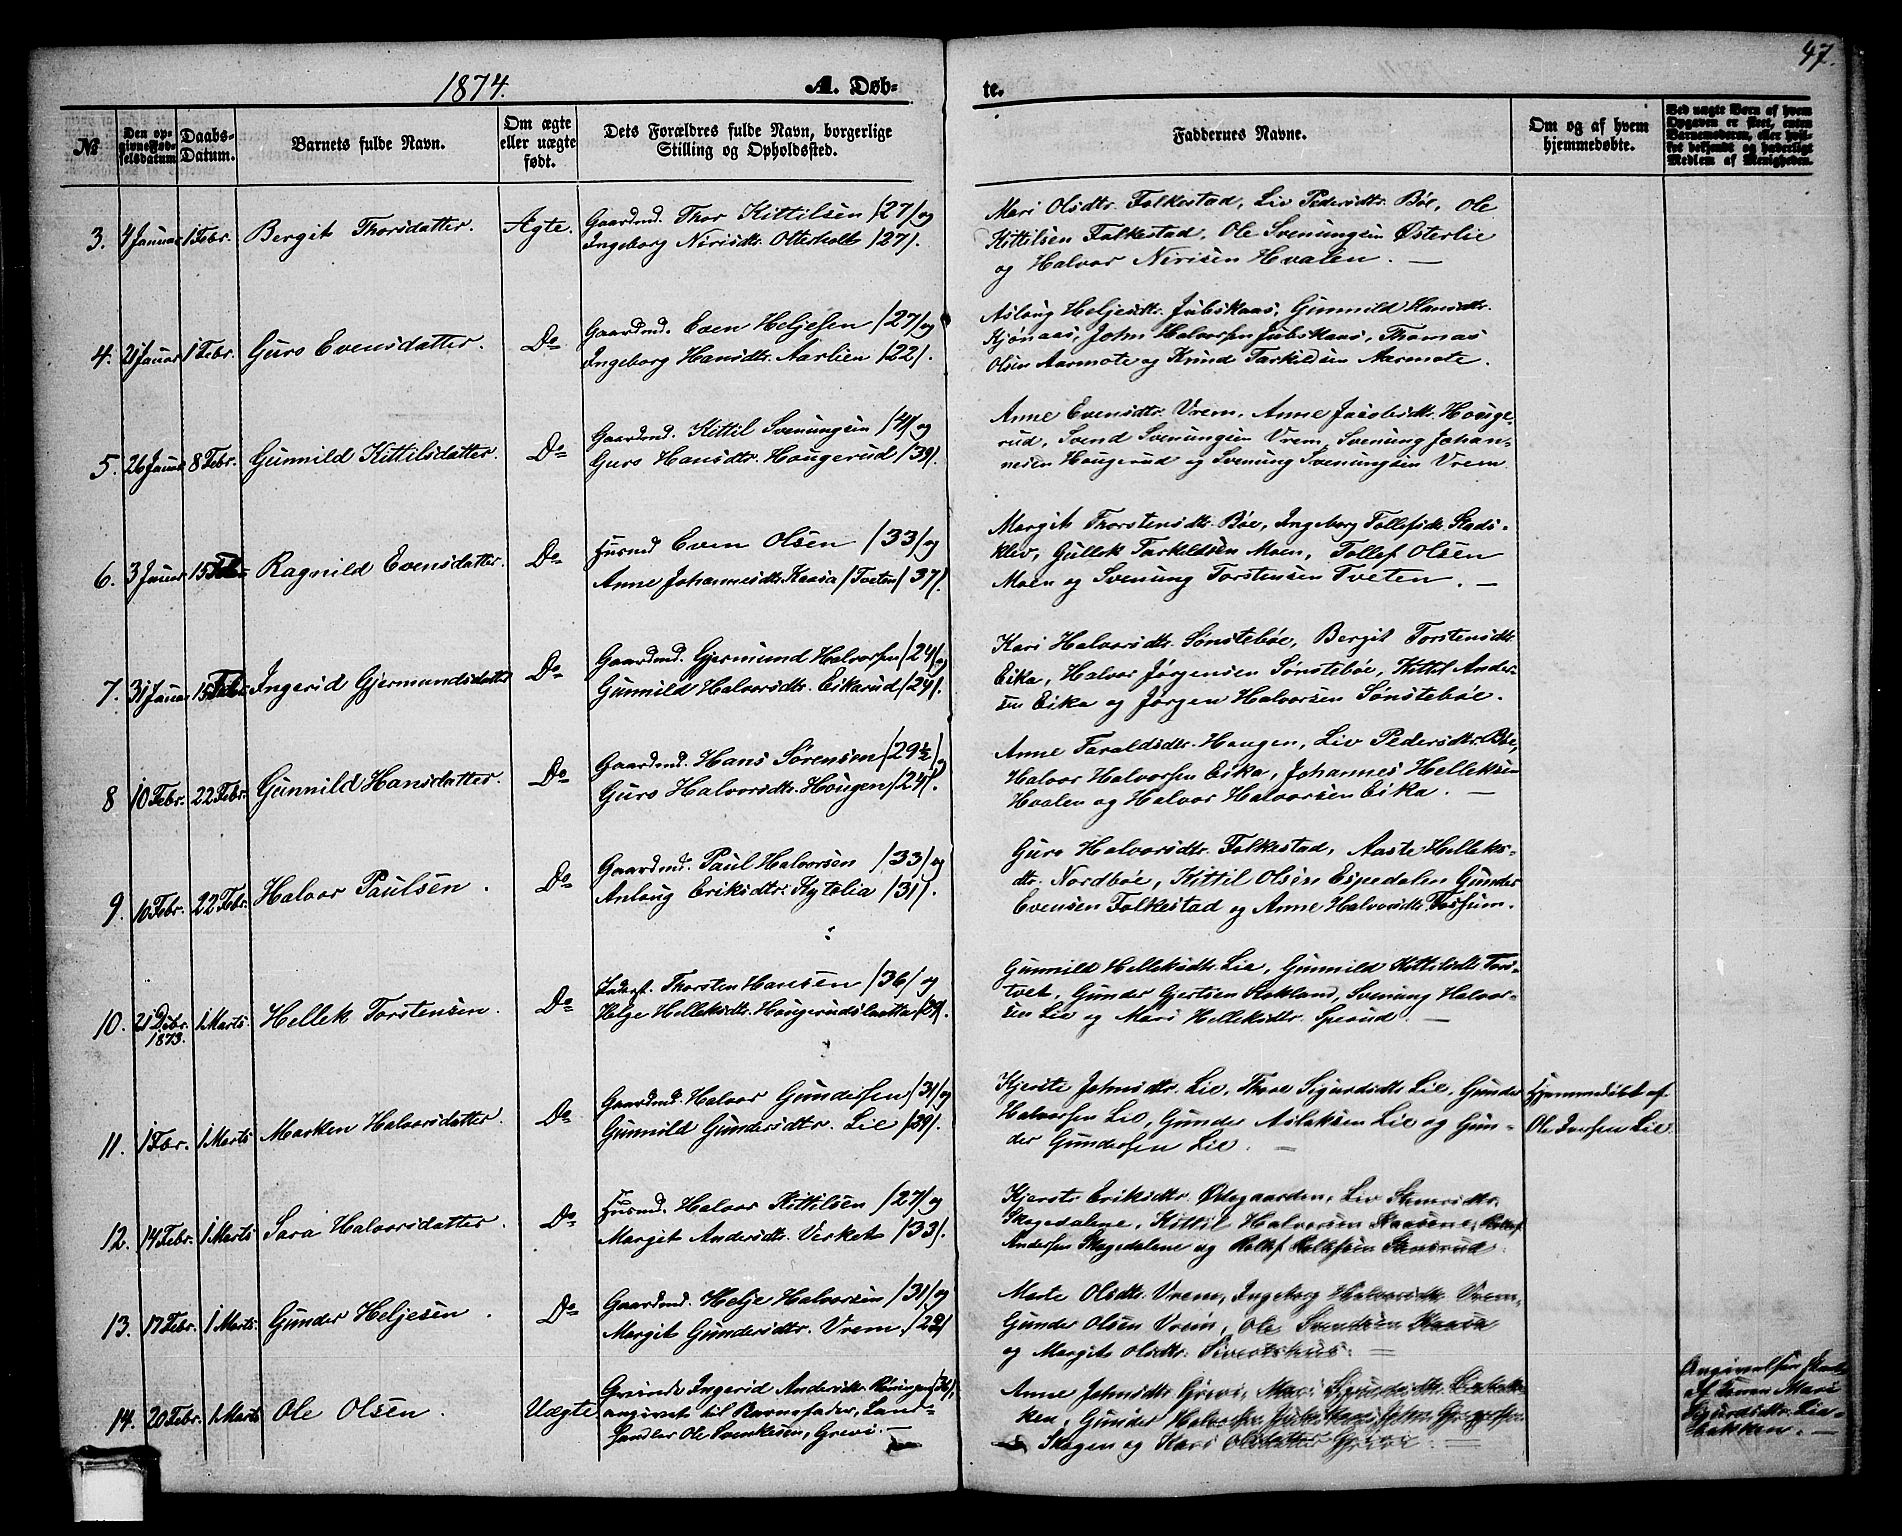 47.
1874.
A. Døb-
te.
№
Den op-
givne Fød-
selsdatum
Daabs-
Datum.
Barnets fulde Navn.
Om ægte
eller uægte
født.
Dets Forældres fulde Navn, borgerlige
Stilling og Opholdssted.
Faddernes Navne.
Om og af hvem
hjemmedøbte.
Ved uægte Børn af hvem
Opgaven er skeet, enten
Barnemoderen, eller hvil-
ket bekjendt og hæderligt
Medlem af Menigheden.
3. 4 Januar 1 Febr. Bergit Thorsdatter. Ægte.
Gaardmd. Thor Kittilsen /27/ og
Ingeborg Nirisdtr. Otterholt /27/.
Mari Olsdtr. Folkestad, Liv Pedersdtr. Bøe, Ole
Kittilsen Folkestad, Ole Svenungsen Østerlie
og Halvor Nirisen Hvalen. —
4. 21 Januar 1 Febr. Guro Evensdatter. Do
Gaardmd. Even Heljesen /27/ og
Ingeborg Hansdtr. Aarlien /22/.
Aslaug Heljesdtr. Jubskaas, Gunnild Hansdtr.
Kjønaas, John Halvorsen Jubskaas, Thomas
Olsen Aarmote og Knud Tarkildsen Aarmote.
5. 26 Januar 8 Febr. Gunnild Kittilsdatter. Do
Gaardmd. Kittil Svenungsen /41/ og
Guro Hansdtr. Hougerud /39/.
Anne Evensdtr. Vrem, Anne Jacobsdtr. Houge-
rud, Svend Svenungsen Vrem, Svenung Johan-
nesen Hougerud og Svenung Svenungsen Vrem
6. 3 Januar 15 Febr. Ragnild Evensdatter. Do
Husmd Even Olsen /33/ og
Anne Johannesdtr. Kaasa /Tveten/ 37/.
Margit Thorstensdtr. Bøe, Ingeborg Tollefsdtr. Stads-
klev, Gullek Tarkeldsen Moen, Tollef Olsen
Moen og Svenung Torstensen Tveten. —
7. 31 Januar 15 Febr Ingerid Gjermundsdatter Do
Gaardmd. Gjermund Halvorsen /24/ og
Gunnild Halvorsdtr. Eikarud /24/.
Kari Halvorsdtr. Sønstebøe, Bergit Torstensdtr.
Eika, Halvor Jørgensen Sønstebøe, Kittil Ander-
sen Eika og Jørgen Halvorsen Sønstebøe.
8 10 Febr. 22 Febr. Gunnild Hansdatter. Do
Gaardmd. Hans Sørensen /29½/ og
Guro Halvorsdtr. Hougen /24/.
Anne Taraldsdtr. Hougen, Liv Pedersdtr. Bøe,
Halvor Halvorsen Eika, Johannes Helleksen
Hvalen og Halvor Halvorsen Eika. —
9. 10 Febr. 22 Febr. Halvor Paulsen. Do
Gaardmd. Paul Halvorsen /33/ og
Anlaug Eriksdtr. Kytelia /31/.
Guro Halvorsdtr. Folkestad, Aaste Helleks-
dtr. Nordbøe, Kittil Olsen Espedalen Gunder
Evensen Folkestad og Anne Halvorsdtr. Fossum.
10. 21 Debr. 1873. 1 Marts Hellek Torstensen. Do
Thorsten Hansen /36/ og
Helge Helleksdtr. Hougerudslaatta /39/.
Gunnild Helleksdtr. Lie, Gunnild Kittilsdtr. Tors-
tvet, Gunder Gjertsen Stokland, Svenung Halvor-
sen Lie og Mari Helleksdtr. Sperud. —
11. 1 Febr. 1 Marts Marken Halvorsdatter. Do
Gaardmd. Halvor Gundersen /31/ og
Gunnild Gundersdtr. Lie /39/.
Kjerste Johnsdtr. Lie, Thore Sigurdsdtr. Lie, Gunder
Halvorsen Lie, Gunder Aslaksen Lie og Gun-
der Gundersen Lie. —
Hjemmedøbt af
Ole Iversen Lie.
12. 14 Febr. 1 Marts Sara Halvorsdatter. Do
Husmd. Halvor Kittilsen /27/ og
Margit Andersdtr. Verket /33/.
Kjersti Eriksdtr. Ødegaarden, Liv Stensdtr.
Skogedalene, Kittil Halvorsen Kaasene, Rollef
Andersen Skogedalene og Rollef Rollefsen Stensrud.
13. 17 Febr. 1 Marts Gunder Heljesen. Do
Gaardmd. Helje Halvorsen /31/ og
Margit Gundersdtr. Vrem. /22/
Marte Olsdtr. Vrem, Ingeborg Halvorsdtr. Vrem,
Gunder Olsen Vrem, Ole Svendsen Kaasa
og Margit Olsdtr. Sivertshus. —
14. 20 Febr. 1 Marts Ole Olsen. Uægte
Ingerid Andersdtr. /36/,
angivet til Barnefader, Land-
handler Ole Svenkesen, Grevi. —
Anne Johnsdtr. Grevi, Mari Sigurdsdtr. Liabak-
ken, Gunder Halvorsen Jubskaas, John Gregersen
Skogen og Kari Olsdatter Grevi. —
Angivelsen skeet
af Mari
Sigurdsdtr. Lia-
bakken. —